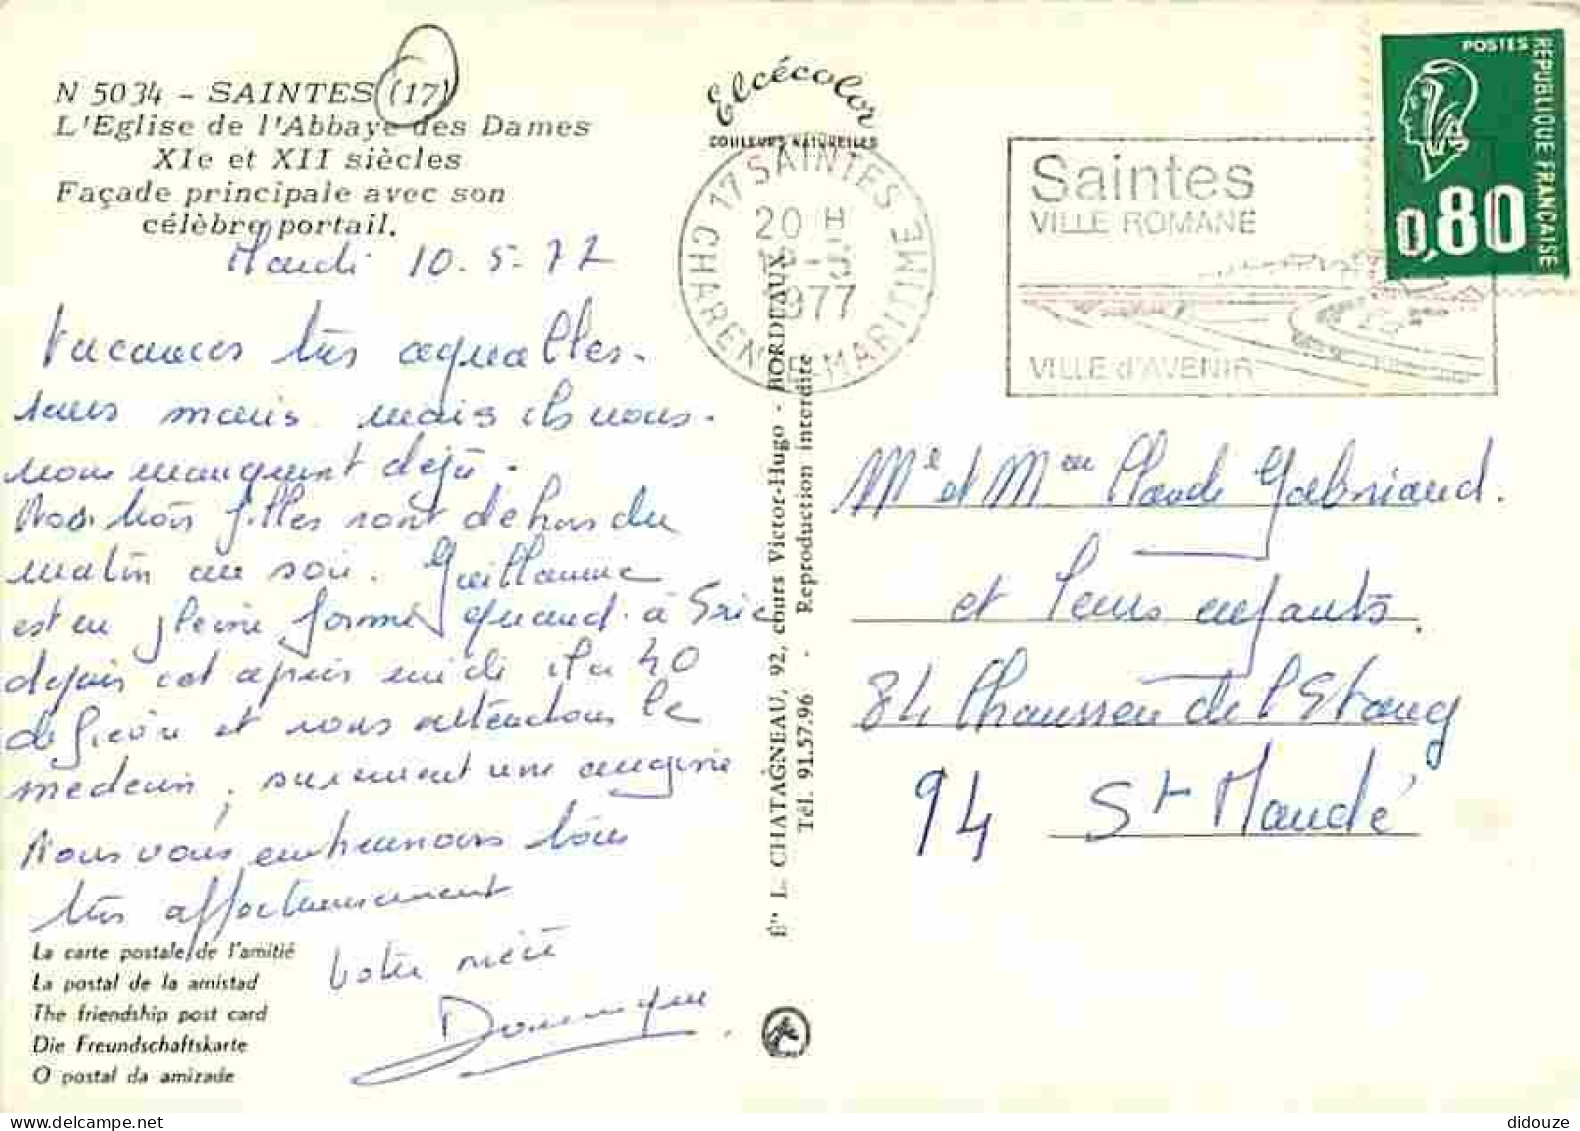 N 5034 - SAINTES (17)
L'Eglise de l'Abbaye des Dames
XIe et XII siècles
Façade principale avec son
célèbre portail.
Mardi 10.5.77
Vacances très agréables.
sans maris mais ils nous
manquent déjà.
Nos trois filles sont dehors du
matin au soir. Guillaume
est en pleine forme quand à Eric
depuis cet après midi il a 40
de fièvre et nous attendons le
medecin, surement une angine
Nous vous embrassons tous
très affectueusement
Votre nièce
Dominique
La carte postale de l'amitié
La postal de la amistad
The friendship post card
Die Freundschaftskarte
O postal da amizade
Elcécolor
COULEURS NATURELLES
17 SAINTES
20 H
1977
CHARENTE MARITIME
Éts L. CHATAGNEAU, 92, cours Victor-Hugo - BORDEAUX
Tél. 91.57.96 - Reproduction interdite
Saintes
VILLE ROMANE
VILLE d'AVENIR
POSTES
REPUBLIQUE FRANÇAISE
0,80
Mr et Mme Claude Gabriaud.
et leurs enfants.
84 Chaussée de l'Etang
94 St Mandé
didouze